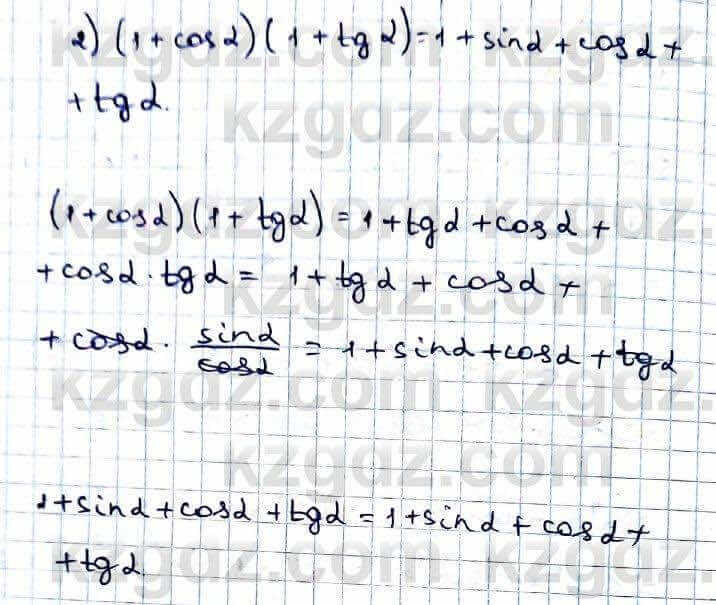 2) (1 + cos α)(1 + tg α) = 1 + sin α + cos α +
+ tg α.
kzgdz.com
(1 + cos α)(1 + tg α) = 1 + tg α + cos α +
+ cos α · tg α = 1 + tg α + cos α +
+ cos α · sin α / cos α = 1 + sin α + cos α + tg α
kzgdz.com kzgdz.
kzgdz.com
1 + sin α + cos α + tg α = 1 + sin α + cos α +
+ tg α.